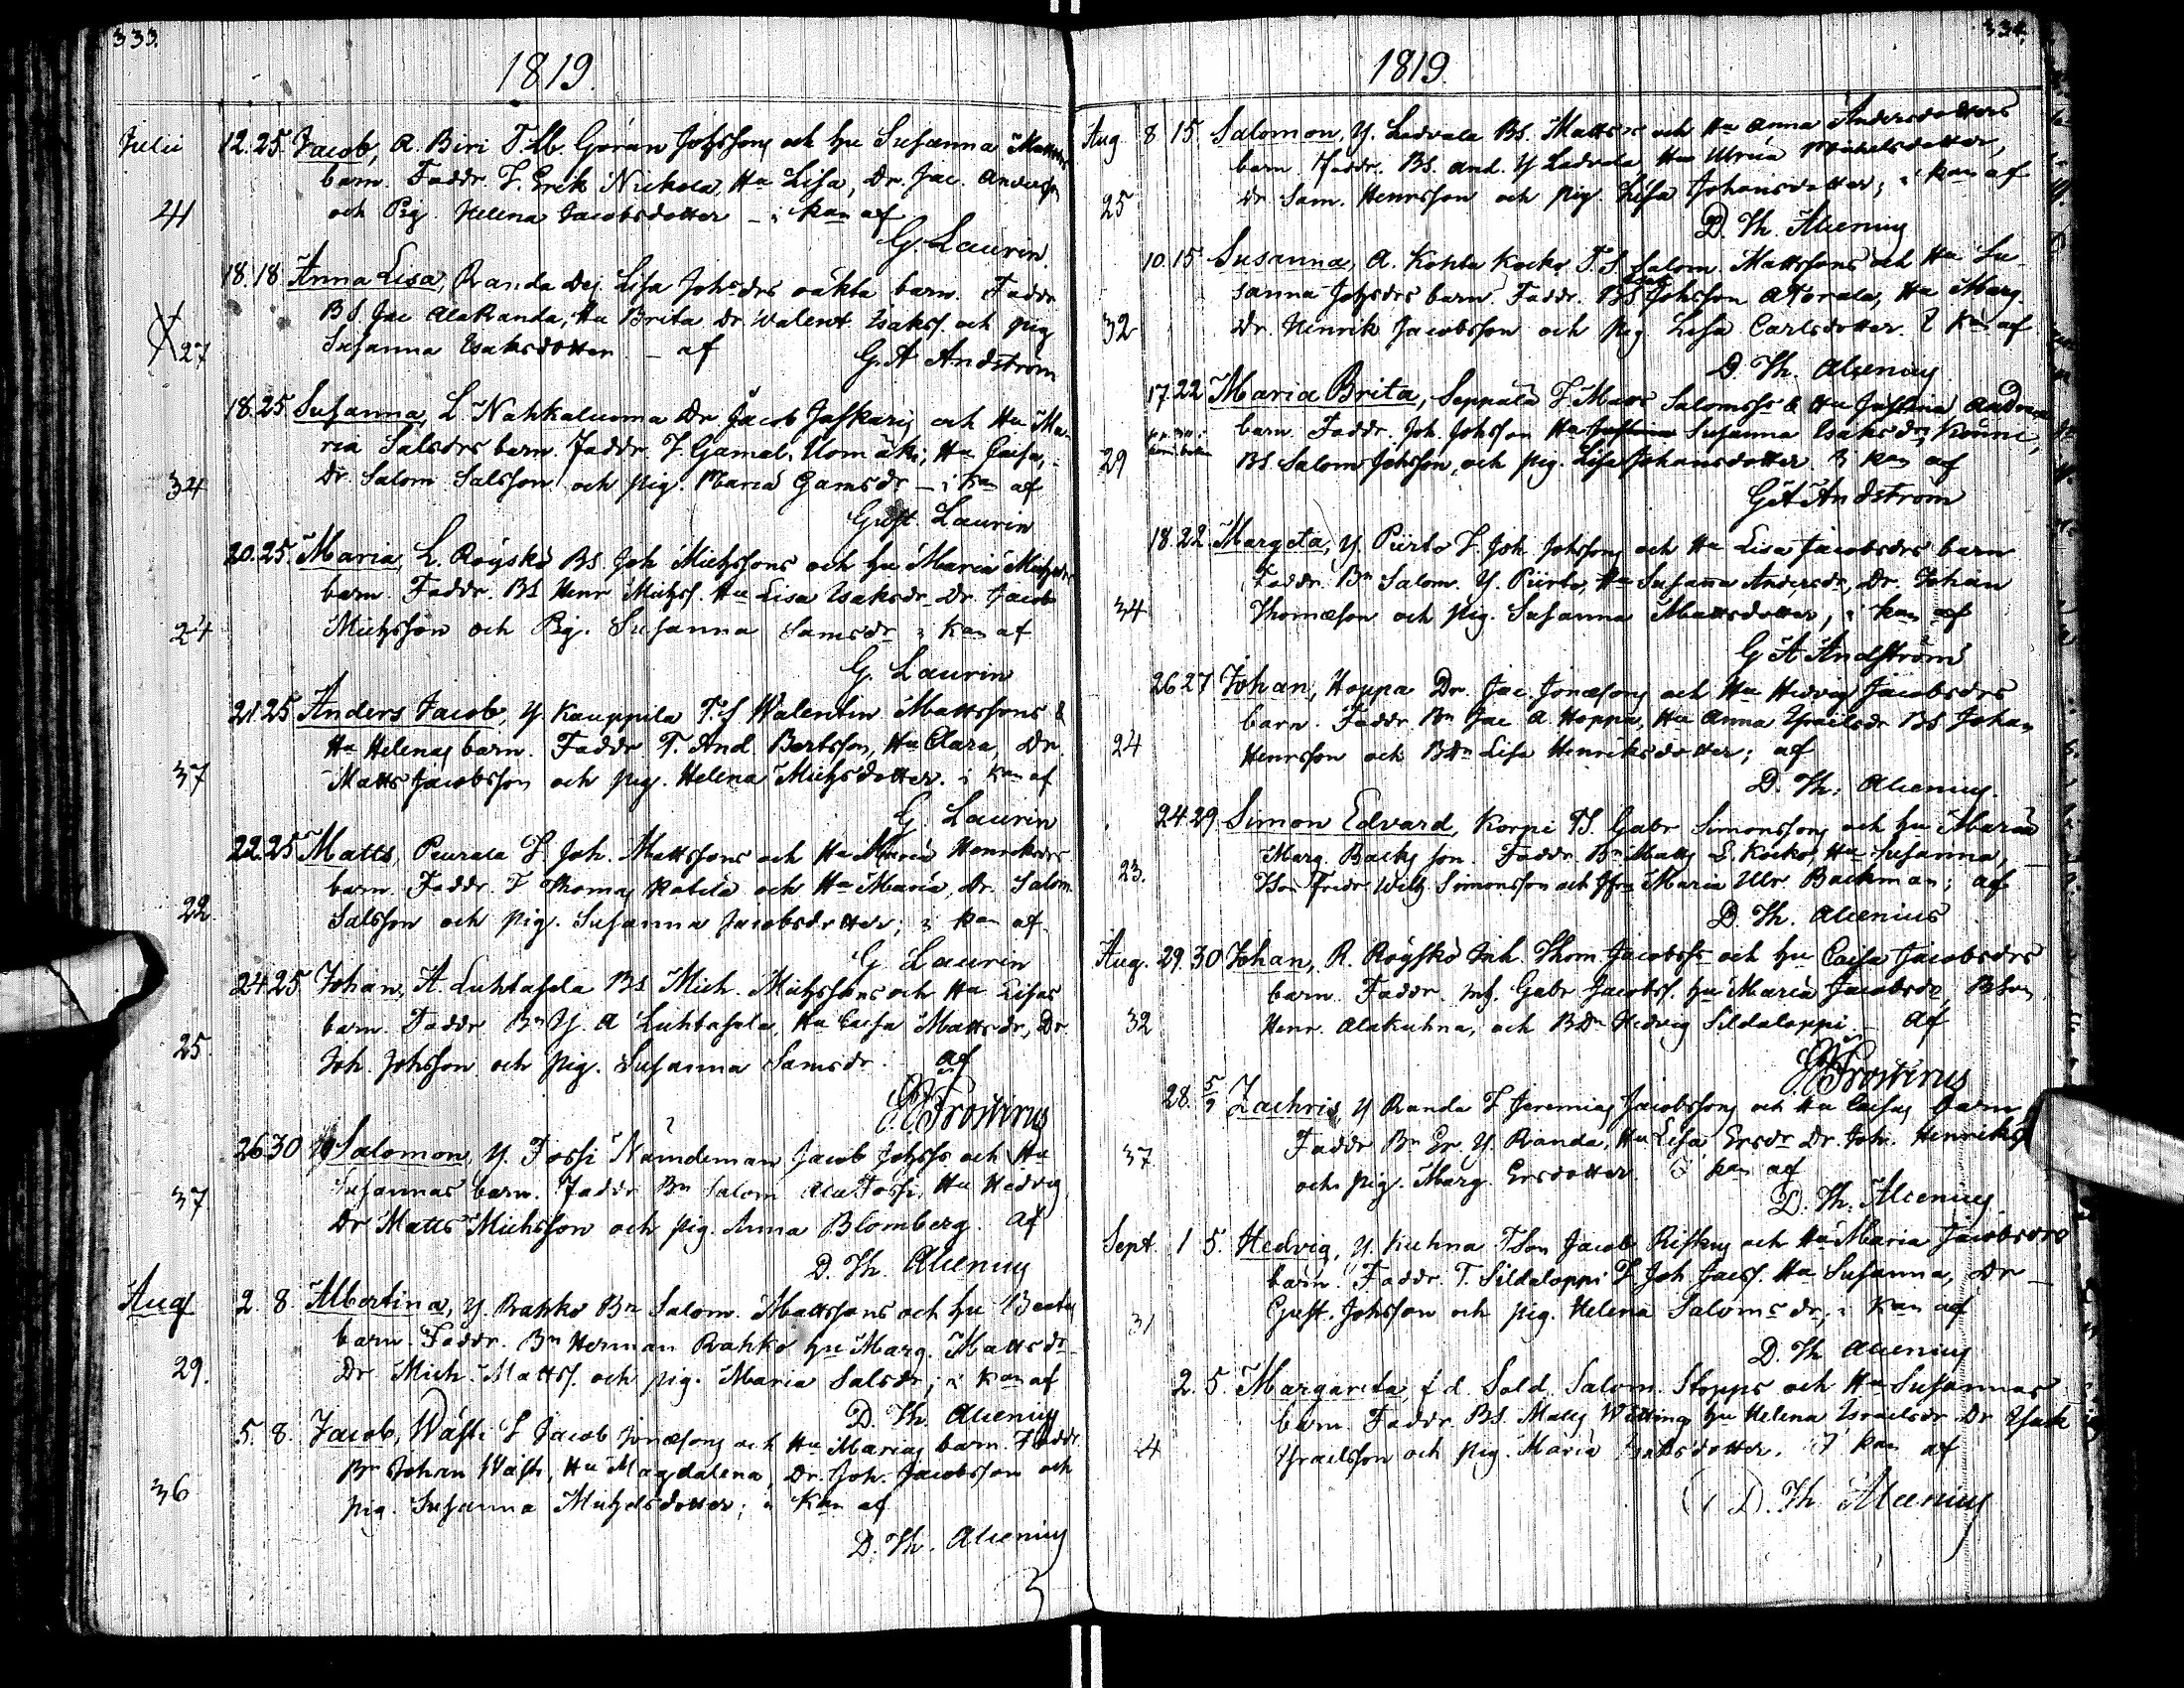 333.
1819.
Julii 12. 25. Jacob, A. Biri T. Göran Johssons och hu Susanna Mattsdrs
barn. Faddr. T. Erik Nickola, Hu Lisa, Dr. Jac. Anderss
41 och Pig. Helena Jacobsdotter – i kan af
G. Laurin.
18. 18. Anna Lisa, Randa Dej. Lisa Johsdrs oäkta barn. Faddr
BS. Jac AlaRanda, Hu Brita Dr. Walent. Isakss. och pig
27 Susanna Isaksdotter – af G. A Andström
18. 25. Susanna, L. Nahkaluoma Dr Jacob Jaskaris och Hu Ma-
ria Salsdrs barn. Faddr. T. Gamal. Uomäki, Hu Caisa,
34 Dr. Salom Salsson och pig. Maria Gamsdr – i kan af
Gust. Laurin
20. 25. Maria, L. Röyskö BS. Joh Michssons och hu Maria Michsdrs
barn. Faddr. BS Henr Michss. Hu Lisa Isaksdr. Dr. Jacob
24 Michsson och Pig. Susanna Samsdr i kan af
G. Laurin
21. 25 Anders Jacob, Y. Kauppila T. S Walentin Mattssons &
Hu Helenas barn. Faddr T. And. Bertsson, Hu Clara, Dr.
37 Matts Jacobsson och pig. Helena Michsdotter. i kan af
G. Laurin
22. 25 Matts, Peurala T. Joh. Mattssons och Hu Maria Henriksdrs
barn. Faddr. T Thomas Katila och Hu Maria, Dr. Salom.
22. Salsson och pig. Susanna Jacobsdotter; i kan af
G Laurin
24 25 Johan, A. Luhtasela BS. Mich. Michssons och Hu Lisas
barn. Faddr Bn Y. A Luhtasela, Hu Caisa Mattsdr, Dr.
25. Joh. Johsson och Pig. Susanna Samsdr. af
Prosterus
26 30 Salomon, Y. Fossi Nämdeman Jacob Johsss och Hu
Susannas barn. Faddr Bn Salom AlaFossi, Hu Hedvig,
37 Dr Matts Michsson och pig. Anna Blomberg. af
D. Th. Alcenius
Aug 2. 8. Albertina, Y. Rahko Bn Salom. Mattssons och hu Beatas
barn. Faddr. Bn Herman Rahko hu Marg. Mattsdr
29. Dr. Mich. Mattss. och pig. Maria Salsdr; i kan af
D. Th. Alcenius
5. 8. Jacob, Wästi T Jacob Jonæsons och Hu Marias barn. Faddr
Bn Johan Wästi, Hu Magdalena, Dr. Joh. Jacobsson och
36 pig. Susanna Michelsdotter; i kan af
D. Th. Alcenius
334.
1819.
Aug 8 15. Salomon, Y. Ledvala BS. Mattss och Hu Anna Andersdotters
barn Faddr. BS. And. Y Ledvala, Hu Ulrica Michelsdotter,
25 Dr. Sam. Henrsson och pig. Lisa Johansdotter; i kan af
D. Th. Alcenius
10. 15. Susanna, A. Kohta Kocko T. S. Salom Mattssons och Hu Su-
sanna Johsdrs barn. Faddr. BS Johsson Aforala, Hu Marg.
32 Dr. Henrik Jacobsson och pig Lisa Carlsdotter. i kan af
D. Th. Alcenius
17. 22 Maria Brita, Seppälä T. Matts Salomsss & Hu Justina
barn. Faddr. Joh. Johsson Hu Susanna Isaksdr, Kouni,
29 BS. Salom Johsson, och pig. Lisa Johansdotter i kan af
G. A Andström
18. 22. Margeta, Y. Piirto T. Joh. Johssons och Hu Lisa Jacobsdrs barn
Faddr. Bn Salom. Y. Piirto, Hu Susanna Andersdr, Dr. Johan
34 Thomæson och pig. Susanna Mattsdotter, i kan af
G A Andström
26 27 Johan, Hoppa Dr. Jac. Jonæsons och Hu Hedvig Jacobsdrs
barn. Faddr. Bn Jac A. Hoppa, Hu Anna Israelsdr BS Johan
24 Henrsson och BDr Lisa Henriksdotter; af
D. Th. Alcenius.
24 29 Simon Edvard, Korpi TS. Gabr Simonssons och hu Maria
Marg. Backs son. Faddr. Bn Matts L. Kocko, Hu Susanna,
23. TSon Fredr. Wilh. Simonsson och Jfrn Maria Ulr. Backman; af
D. Th. Alcenius
Aug. 29. 30 Johan, R. Röyskö Inh. Thom Jacobsss och hu Caisa Jacobsdrs
barn. Faddr. Inh. Gabr Jacobss. hu Maria Jacobsdr, BSon
32 Henr. Alakuhna, och BDr Hedvig Sildaloppi. – af
Prosterus
28. 5/9 Zachris, Y Randa T Jeremias Jacobssons och Hu Caisas barn
Faddr Bn Er. Y. Randa, Hu Lisa Ersdr Dr. Joh. Henriks
37 och pig. Marg. Ersdotter. i kan af
D. Th. Alcenius
Sept. 1 5. Hedvig, Y. Kuhna TSon Jacob Riskus och Hu Maria Jacobsdrs
barn. Faddr. T. Sildaloppi T Joh Jacss. Hu Susanna, Dr
31 Gust. Johsson och pig. Helena Salomsdr; i kan af
D. Th Alcenius
2. 5. Margareta, f d. Sold. Salom. Stopps och Hu Susannas
barn. Faddr. BS. Matts Witting hu Helena Israelsdr Dr. Isak
24 Israelsson och pig. Maria Isaksdotter. i kan af
D. Th. Alcenius